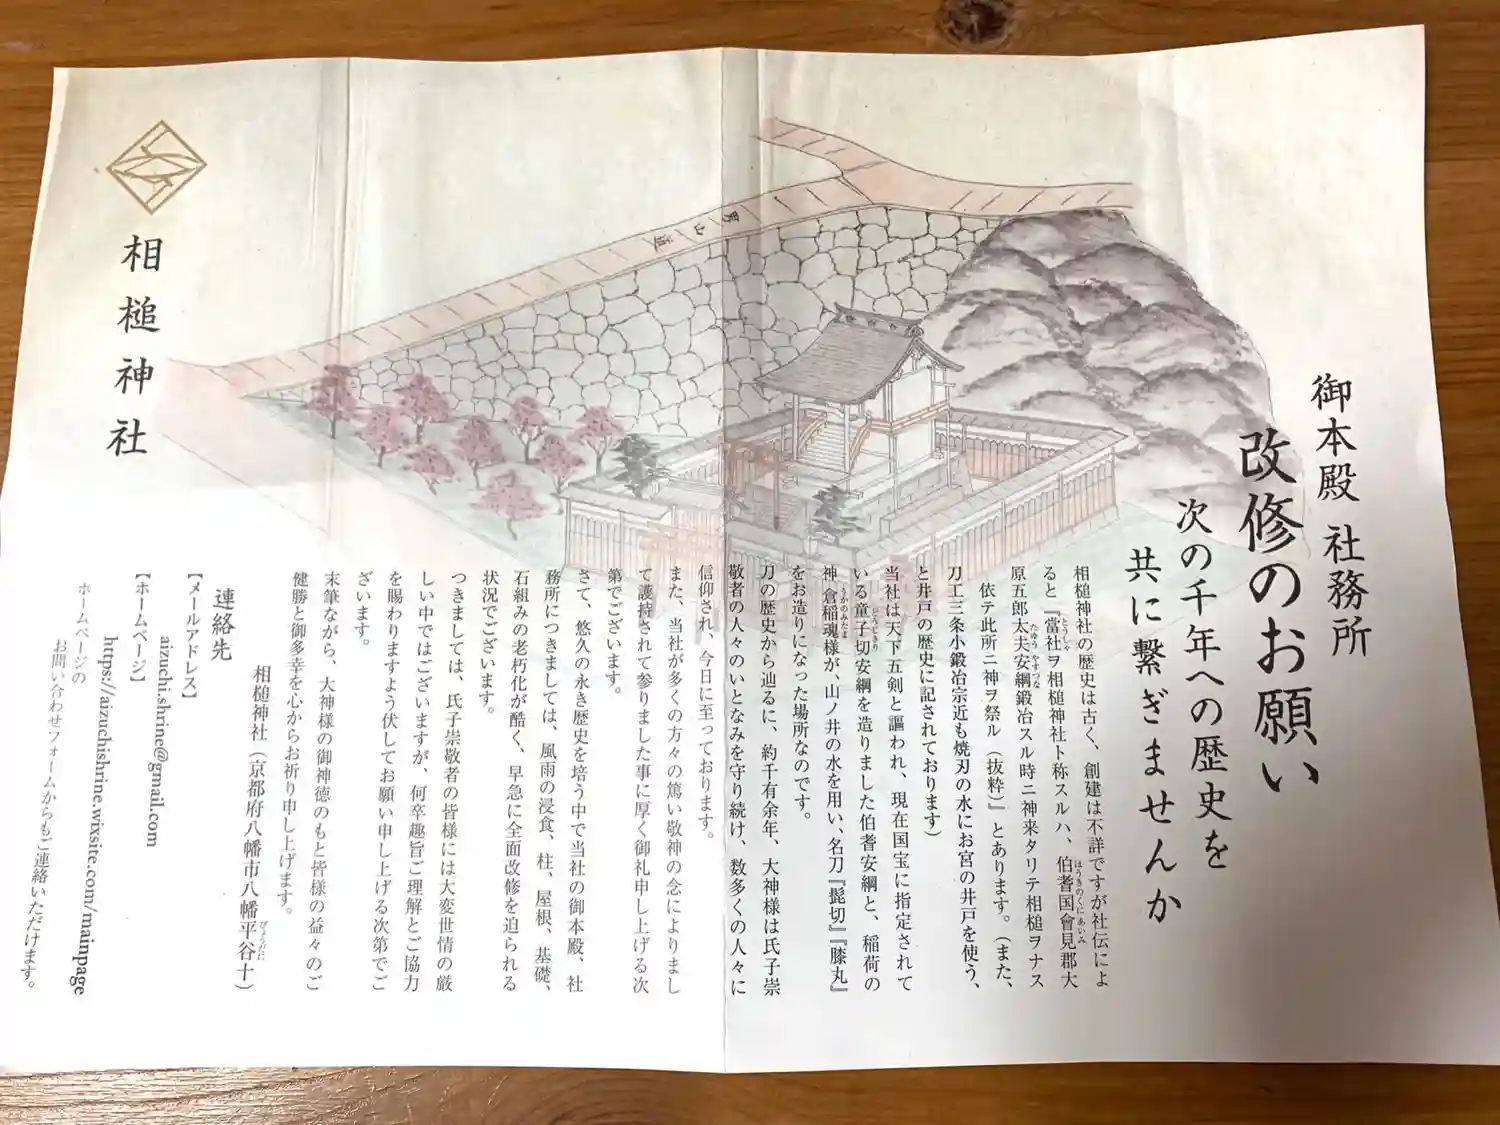 御本殿 社務所
改修のお願い
次の千年への歴史を
共に繋ぎませんか
相槌神社の歴史は古く、創建は不詳ですが社伝によ
ると『當社ヲ相槌神社ト称スルハ、伯耆国會見郡大
原五郎太夫安綱鍛冶スル時ニ神来タリテ相槌ヲナス
依テ此所ニ神ヲ祭ル(抜粋)』とあります。(また、
刀工三条小鍛冶宗近も焼刃の水にお宮の井戸を使う、
と井戸の歴史に記されております)
当社は天下五剣と謳われ、現在国宝に指定されて
いる童子切安綱を造りました伯耆安綱と、稲荷の
神、倉稲魂様が、山ノ井の水を用い、名刀『髭切』『膝丸』
をお造りになった場所なのです。
刀の歴史から辿るに、約千有余年、大神様は氏子崇
敬者の人々のいとなみを守り続け、数多くの人々に
信仰され、今日に至っております。
また、当社が多くの方々の篤い敬神の念によりまし
て護持されて参りました事に厚く御礼申し上げる次
第でございます。
さて、悠久の永き歴史を培う中で当社の御本殿、社
務所につきましては、風雨の浸食、柱、屋根、基礎、
石組みの老朽化が酷く、早急に全面改修を迫られる
状況でございます。
つきましては、氏子崇敬者の皆様には大変世情の厳
しい中ではございますが、何卒趣旨ご理解とご協力
を賜わりますよう伏してお願い申し上げる次第でご
ざいます。
末筆ながら、大神様の御神徳のもと皆様の益々のご
健勝と御多幸を心からお祈り申し上げます。
相槌神社(京都府八幡市八幡平谷十)
連絡先
【メールアドレス】
aizuchi.shrine@gmail.com
【ホームページ】
https://aizuchishrine.wixsite.com/mainpage
ホームページの
お問い合わせフォームからもご連絡いただけます。
相槌神社
男山道